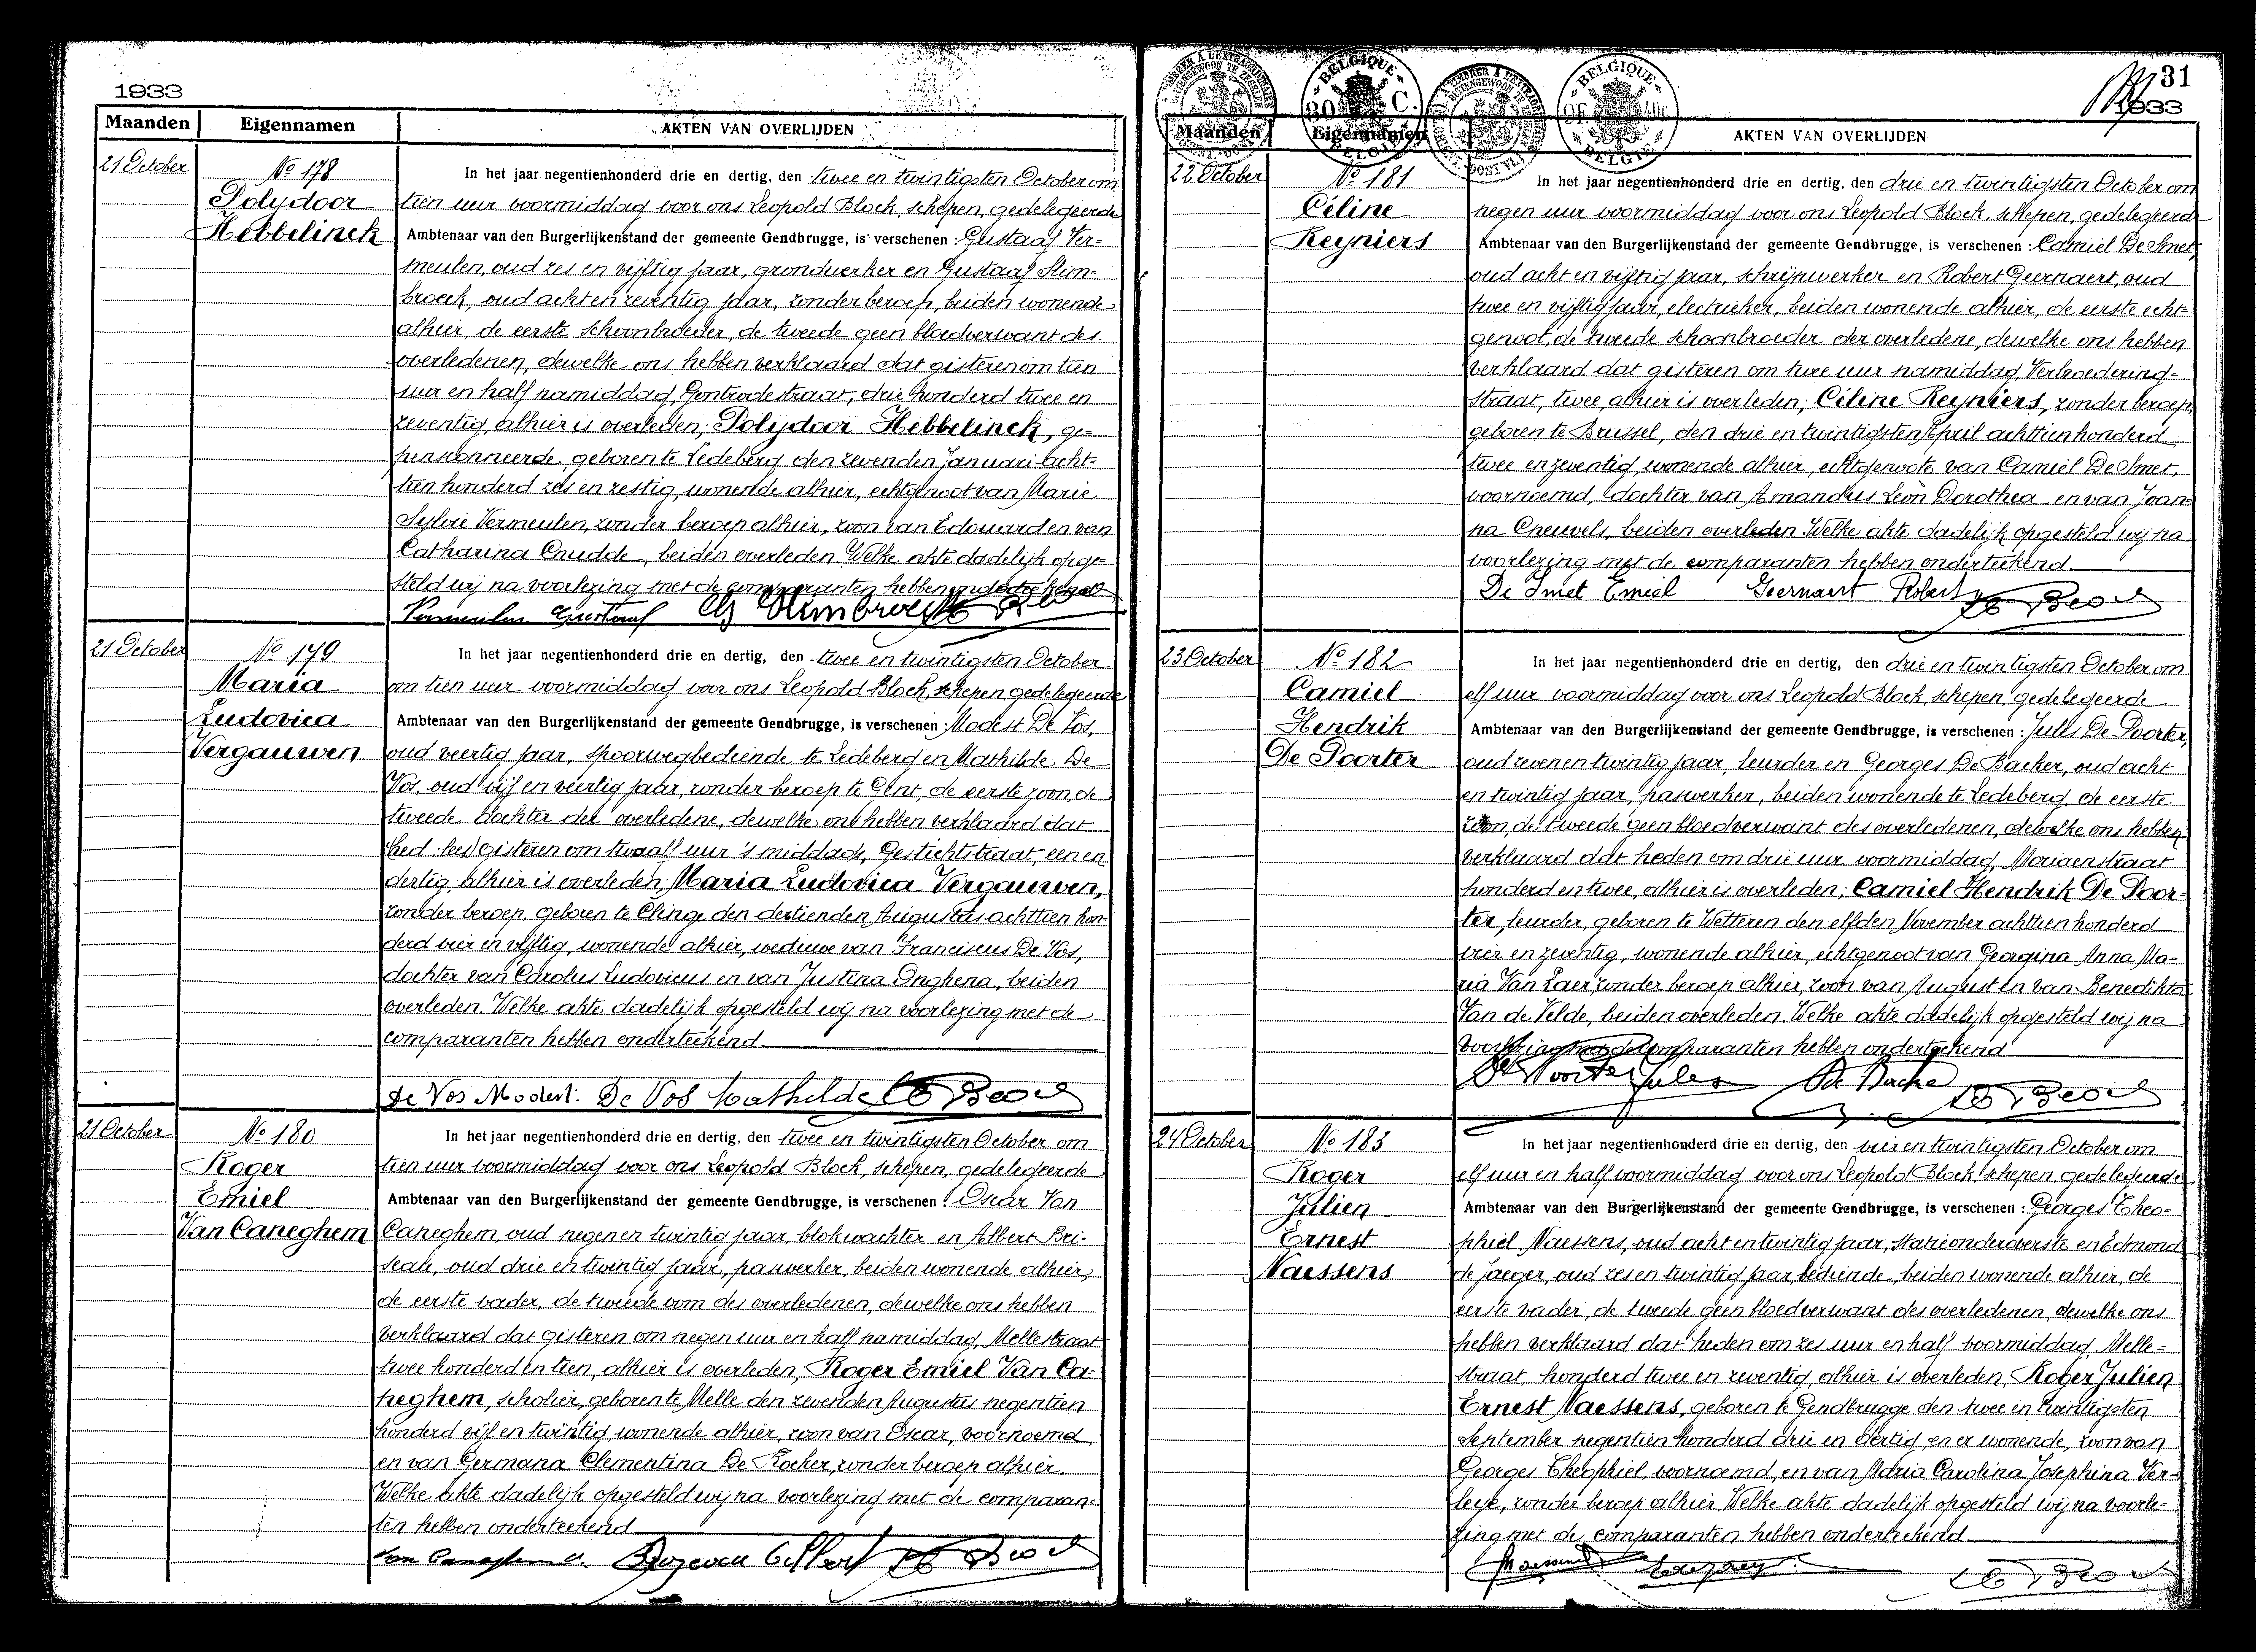 1933
Maanden
Eigennamen
AKTEN VAN OVERLIJDEN
21 October
Nº 178
Polydoor
Hebbelinck
In het jaar negentienhonderd drie en dertig, den twee en twintigsten October om
tien uur voormiddag voor ons Leopold Block, schepen, gedelegeerde
Ambtenaar van den Burgerlijkenstand der gemeente Gendbrugge, is verschenen : Gustaaf Ver=
meulen, oud zes en vijftig jaar, grondwerker en Gustaaf Slim=
broeck, oud acht en zeventig jaar, zonder beroep, beiden wonende
alhier, de eerste schoonbroeder, de tweede geen bloedverwant des
overledenen, dewelke ons hebben verklaard dat gisteren om tien
uur en half namiddag, Gontrodestraat, drie honderd twee en
zeventig, alhier is overleden; Polydoor Hebbelinck, ge=
pensionneerde, geboren te Ledeberg den zevenden Januari acht=
tien honderd zes en zestig, wonende alhier, echtgenoot van Marie
Sylvie Vermeulen, zonder beroep alhier, zoon van Edouard en van
Catharina Cnudde, beiden overleden. Welke akte dadelijk opge=
steld wij na voorlezing met de comparanten hebben onderteekend
Vermeulen Gustaaf
21 October
Nº 179
Maria
Ludovica
Vergauwen
In het jaar negentienhonderd drie en dertig, den twee en twintigsten October
om tien uur voormiddag voor ons Leopold Block, schepen, gedelegeerde
Ambtenaar van den Burgerlijkenstand der gemeente Gendbrugge, is verschenen : Modest De Vos,
oud veertig jaar, spoorwegbediende te Ledeberg en Mathilde De
Vos, oud vijf en veertig jaar, zonder beroep te Gent, de eerste zoon, de
tweede dochter der overledene, dewelke ons hebben verklaard dat
gisteren om twaalf uur 's middags, Gestichtstraat, een en
dertig, alhier is overleden; Maria Ludovica Vergauwen,
zonder beroep, geboren te Clinge den dertienden Augustus achttien hon=
derd vier en vijftig, wonende alhier, weduwe van Franciscus De Vos,
dochter van Carolus Ludovicus en van Justina Onghena, beiden
overleden. Welke akte dadelijk opgesteld wij na voorlezing met de
comparanten hebben onderteekend
De Vos Modest. De Vos Mathilde
21 October
Nº 180
Roger
Emiel
Van Caneghem
In het jaar negentienhonderd drie en dertig, den twee en twintigsten October om
tien uur voormiddag voor ons Leopold Block, schepen, gedelegeerde
Ambtenaar van den Burgerlijkenstand der gemeente Gendbrugge, is verschenen : Oscar Van
Caneghem, oud negen en twintig jaar, blokwachter en Albert
oud drie en twintig jaar, paswerker, beiden wonende alhier,
de eerste vader, de tweede oom des overledenen, dewelke ons hebben
verklaard dat gisteren om negen uur en half namiddag, Mellestraat
twee honderd en tien, alhier is overleden; Roger Emiel Van Ca=
neghem, scholier, geboren te Melle den zevenden Augustus negentien
honderd vijf en twintig wonende alhier, zoon van Oscar, voornoemd
en van Germana Clementina De Kocker, zonder beroep alhier.
Welke akte dadelijk opgesteld wij na voorlezing met de comparan=
ten hebben onderteekend
31
1933
BELGIQUE
30 C.
BELGIE
BELGIQUE
BELGIE
Maanden
Eigennamen
AKTEN VAN OVERLIJDEN
22 October
Nº 181
Céline
Reyniers
In het jaar negentienhonderd drie en dertig, den drie en twintigsten October om
negen uur voormiddag voor ons Leopold Block, schepen, gedelegeerde
Ambtenaar van den Burgerlijkenstand der gemeente Gendbrugge, is verschenen : Camiel De Smet,
oud acht en vijftig jaar, schrijnwerker en Robert Geernaert, oud
twee en vijftig jaar, electrieker, beiden wonende alhier, de eerste echt=
genoot, de tweede schoonbroeder der overledene, dewelke ons hebben
verklaard dat gisteren om twee uur namiddag, Verbroedering=
straat, twee, alhier is overleden; Céline Reyniers, zonder beroep,
geboren te Brussel, den drie en twintigsten April achttien honderd
twee en zeventig, wonende alhier, echtgenoote van Camiel De Smet,
voornoemd, dochter van Amandus Leon Dorothea en van Joan=
na Cneuvels, beiden overleden. Welke akte dadelijk opgesteld wij na
voorlezing met de comparanten hebben onderteekend
De Smet Emiel Geernaert Robert
23 October
Nº 182
Camiel
Hendrik
De Poorter
In het jaar negentienhonderd drie en dertig, den drie en twintigsten October om
elf uur voormiddag voor ons Leopold Block, schepen, gedelegeerde
Ambtenaar van den Burgerlijkenstand der gemeente Gendbrugge, is verschenen : Jules De Poorter,
oud zeven en twintig jaar, leurder en Georges De Backer, oud acht
en twintig jaar, paswerker, beiden wonende te Ledeberg, de eerste
zoon, de tweede geen bloedverwant des overledenen, dewelke ons hebben
verklaard dat heden om drie uur voormiddag, Mariaenstraat
honderd en twee, alhier is overleden; Camiel Hendrik De Poor=
ter, leurder, geboren te Wetteren den elfden November achttien honderd
vier en zeventig, wonende alhier, echtgenoot van Georgina Anna Ma=
ria Van Laer, zonder beroep alhier, zoon van August en van Benedikta
Van de Velde, beiden overleden. Welke akte dadelijk opgesteld wij na
voorlezing met de comparanten hebben onderteekend
De Poorter Jules De Backe
24 October
Nº 183
Roger
Julien
Ernest
Naessens
In het jaar negentienhonderd drie en dertig, den vier en twintigsten October om
elf uur en half voormiddag voor ons Leopold Block, schepen, gedelegeerde
Ambtenaar van den Burgerlijkenstand der gemeente Gendbrugge, is verschenen : Georges Theo=
phiel Naessens, oud acht en twintig jaar, statieonderoverste en Edmond
de Jaeger, oud zes en twintig jaar, bediende, beiden wonende alhier, de
eerste vader, de tweede geen bloedverwant des overledenen, dewelke ons
hebben verklaard dat heden om zes uur en half voormiddag, Melle=
straat, honderd twee en zeventig alhier is overleden, Roger Julien
Ernest Naessens, geboren te Gendbrugge den twee en twintigsten
September negentien honderd drie en dertig, en er wonende, zoon van
Georges Theophiel, voornoemd, en van Maria Carolina Josephina Ver=
leye, zonder beroep alhier. Welke akte dadelijk opgesteld wij na voorle=
zing met de comparanten hebben onderteekend